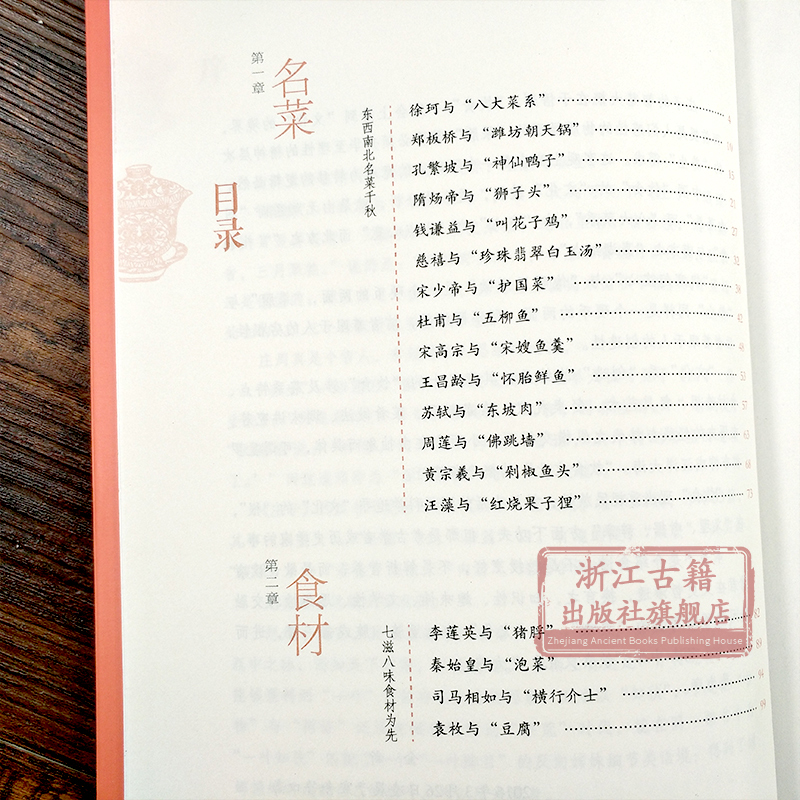 目录
第一章
名菜
东西南北名菜千秋
徐珂与“八大菜系” 4
郑板桥与“潍坊朝天锅”
孔繁坡与“神仙鸭子” 15
隋炀帝与“狮子头” 21
钱谦益与“叫花子鸡” 27
慈禧与“珍珠翡翠白玉汤” 32
宋少帝与“护国菜”
杜甫与“五柳鱼” 42
宋高宗与“宋嫂鱼羹”
王昌龄与“怀胎鲜鱼” 53
苏轼与“东坡肉” 57
周莲与“佛跳墙”
黄宗羲与“剁椒鱼头” 68
汪藻与“红烧果子狸” 73
第二章
食材
七滋八味食材为先
李莲英与“猪脬” 82
秦始皇与“泡菜” 89
司马相如与“横行介士” 94
袁枚与“豆腐” 99
浙江古籍
出版社旗舰店
Zhejiang Ancient Books Publishing House